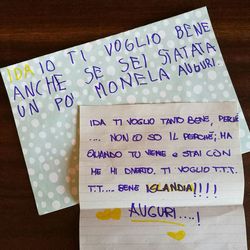 IDA IO TI VOGLIO BENE
ANCHE SE SEI STATA
UN PO' MONELA AUGURI.
IDA TI VOGLIO TANTO BENE, PERCHÉ
.... NON LO SO IL PERCHÉ; HA
QUANDO TU VIENE E STAI CON
ME MI DIVERTO. TI VOGLIO T.T.T.
T.T.... BENE ISLANDIA!!!!
AUGURI....!